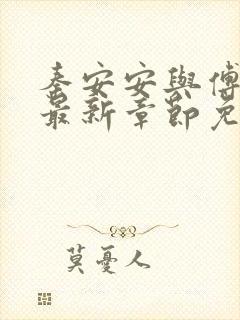 秦安安與傅
最新章節免
莫憂人